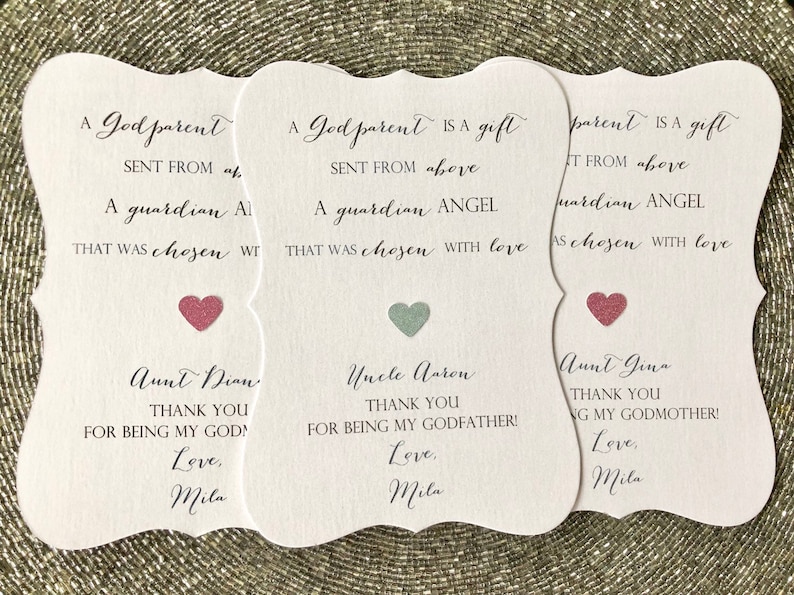 A Godparent
SENT FROM
A guardian
THAT WAS chosen
Aunt
THANK YOU
FOR BEING MY
Love,
Mila
A Godparent IS A gift
SENT FROM above
A guardian ANGEL
THAT WAS chosen WITH love
Uncle Aaron
THANK YOU
FOR BEING MY GODFATHER!
Love,
Mila
IS A gift
FROM above
ANGEL
chosen WITH love
Aunt Gina
THANK YOU
BEING MY GODMOTHER!
Love,
Mila